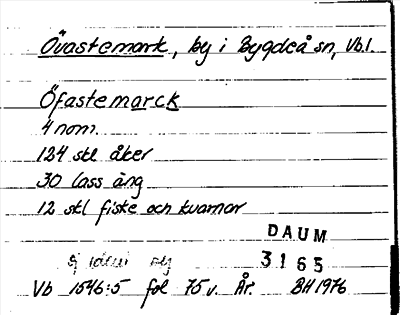 Övastemark, by i Bygdeå sn, Vb l.
Öfastemarck
4 nom.
124 skl åker
30 lass äng
12 skl fiske och kvarnar
DAUM
3165
ej
Vb 1546:5 fol 75 v. År. BH 1976